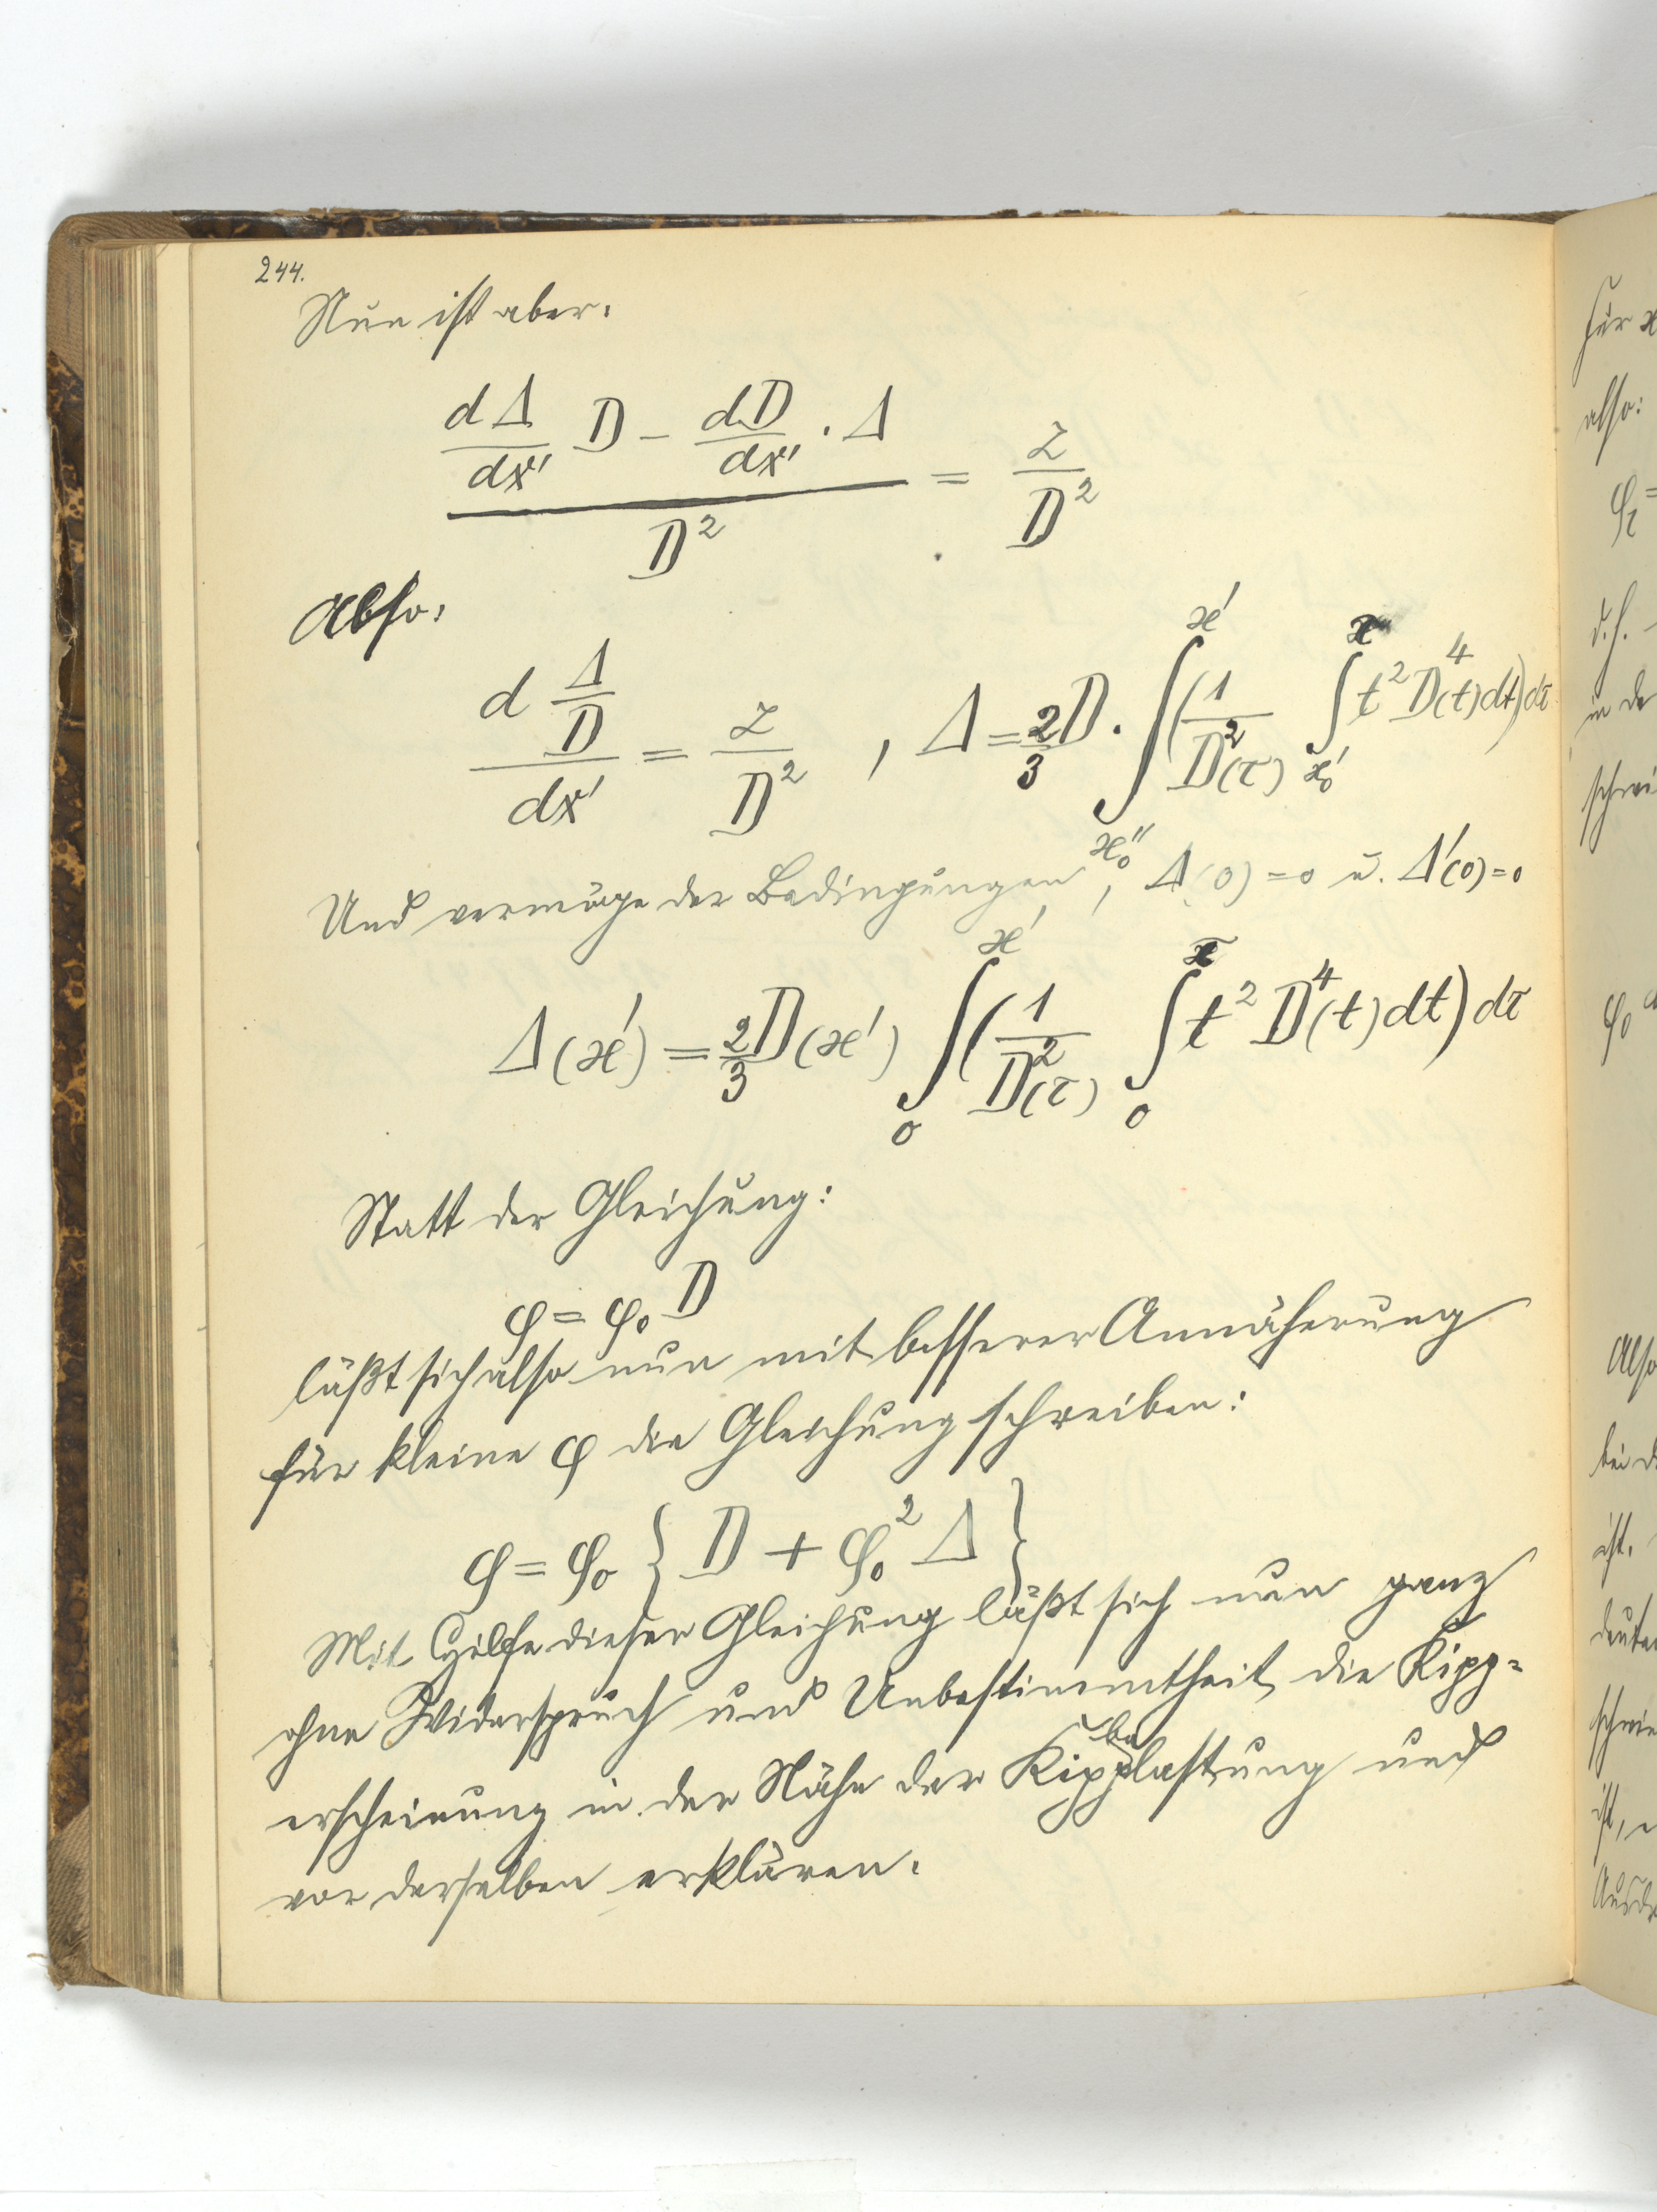 244.
Nun ist aber:
(dΔ/dx' D - dD/dx' · Δ) / D² = Z / D²
Also:
d (Δ/D) / dx' = Z / D² , Δ = 2/3 D · ∫_{x₀''}^{x'} (1/D²(τ) ∫_{x₀'}^{τ} t² D⁴(t) dt) dτ
Und vermöge der Bedingungen, Δ(0) = 0 u. Δ'(0) = 0
Δ(x') = 2/3 D(x') ∫_{0}^{x'} (1/D²(τ) ∫_{0}^{τ} t² D⁴(t) dt) dτ
Statt der Gleichung:
φ = φ₀ D
läßt sich also nun mit besserer Annäherung
für kleine φ die Gleichung schreiben:
φ = φ₀ { D + φ₀² Δ }
Mit Hilfe dieser Gleichung läßt sich nun ganz
ohne Widerspruch und Unbestimmtheit die Kipp-
erscheinung in der Nähe der Kippbelastung und
vor derselben erklären.
Für x
also:
φ₂ =
d.h.
in de
schrei
φ₀
Also
bei d
ist.
ist,
Ausdr